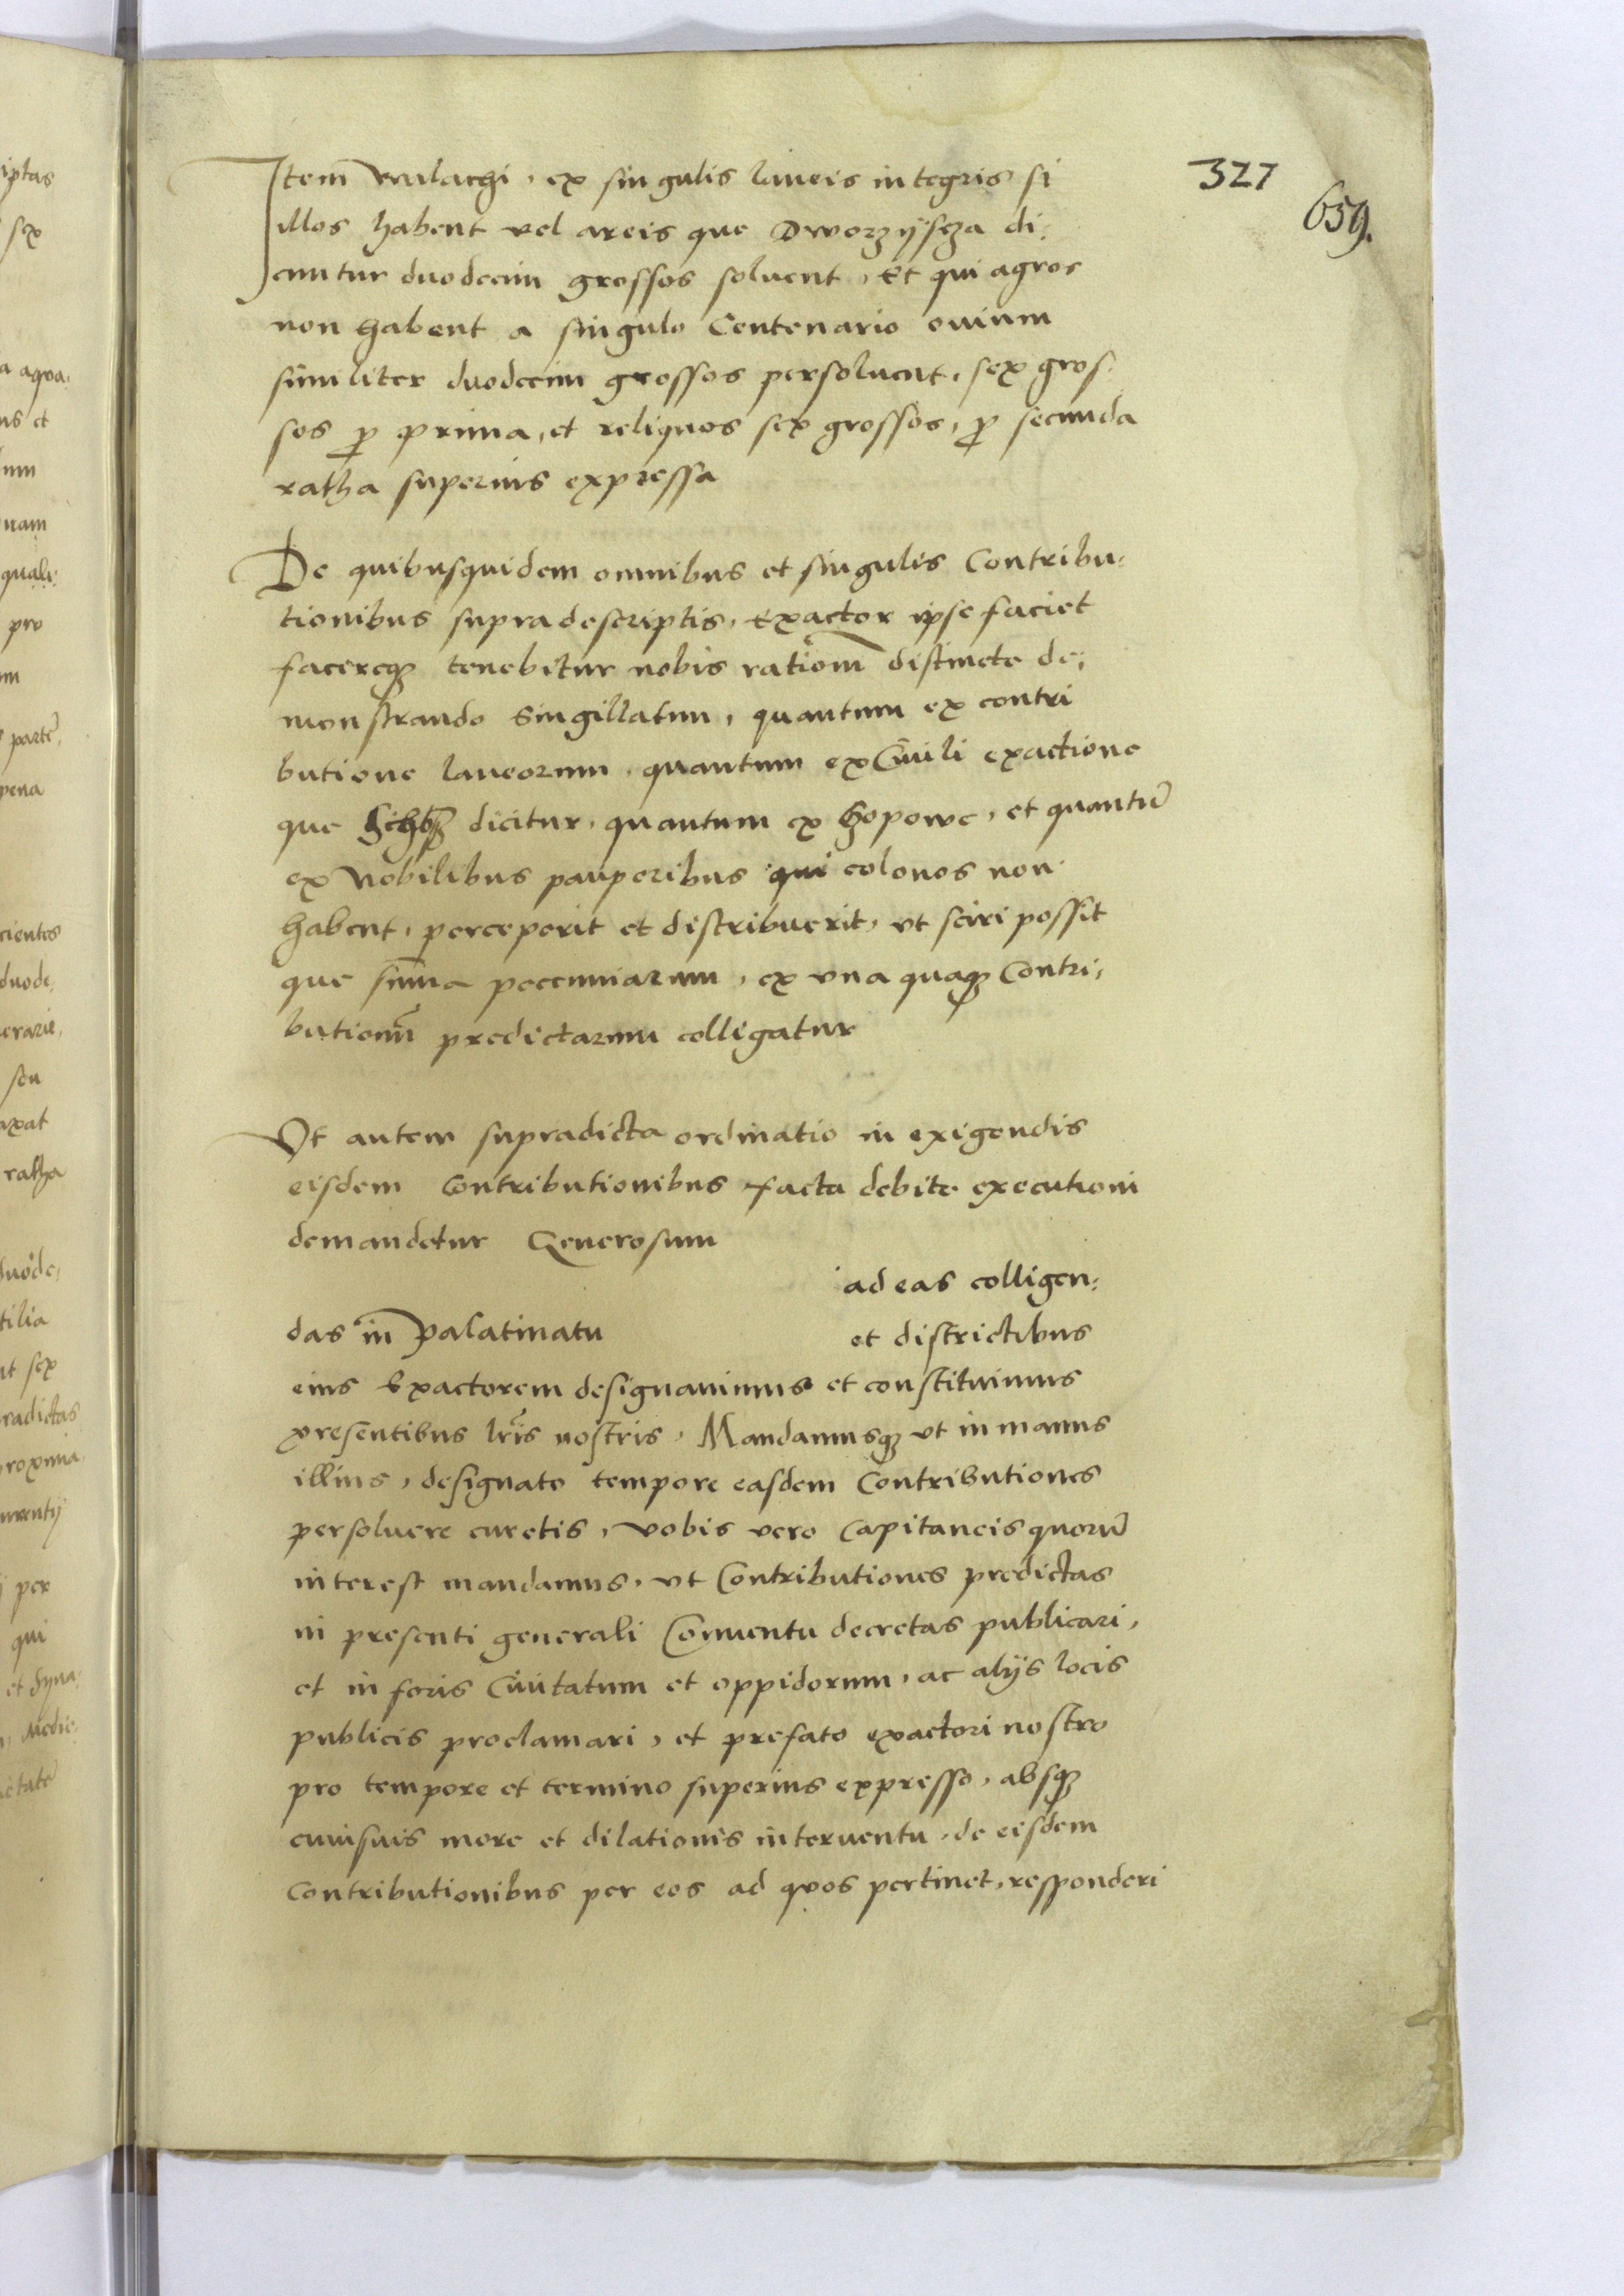 327
659.
Item valachi, ex singulis laneis integris si
illos habent vel areis que Dworzyscza di:
cuntur duodecim grossos soluent, Et qui agros
non habent a singulo Centenario ouium
similiter duodecim grossos persoluent, sex gros:
sos p prima, et reliquos sex grossos, p secunda
ratha superius expressa
De quibusquidem omnibus et singulis Contribu:
tionibus supradescriptis, Exactor ipse faciet
facereq tenebitur nobis rationem distincte de:
monstrando singillatim, quantum ex contri
butione laneorum, quantum ex Ciuili exactione
que dicitur, quantum ex Czopowe, et quantu
ex Nobilibus pauperibus qui colonos non
habent, perceperit et distribuerit, vt sciri possit
que suma pecuniarum, ex vna quaq Contri:
butionu predictarum colligatur
Vt autem supradicta ordinatio in exigendis
eisdem Contributionibus facta debite executioni
demandetur Generosum
ad eas colligen:
das in Palatinatu et districtibus
eius Exactorem designauimus et constituimus
presentibus lris nostris, Mandamusq vt in manus
illius, designato tempore easdem Contributiones
persoluere curetis, vobis vero Capitaneis quoru
interest mandamus, vt Contributiones predictas
in presenti generali Conuentu decretas publicari,
et in foris Ciuitatum et oppidorum, ac alijs locis
publicis proclamari, et prefato exactori nostro
pro tempore et termino superius expresso, absq
cuiusuis more et dilationis interuentu, de eisdem
Contributionibus per eos ad quos pertinet, responderi